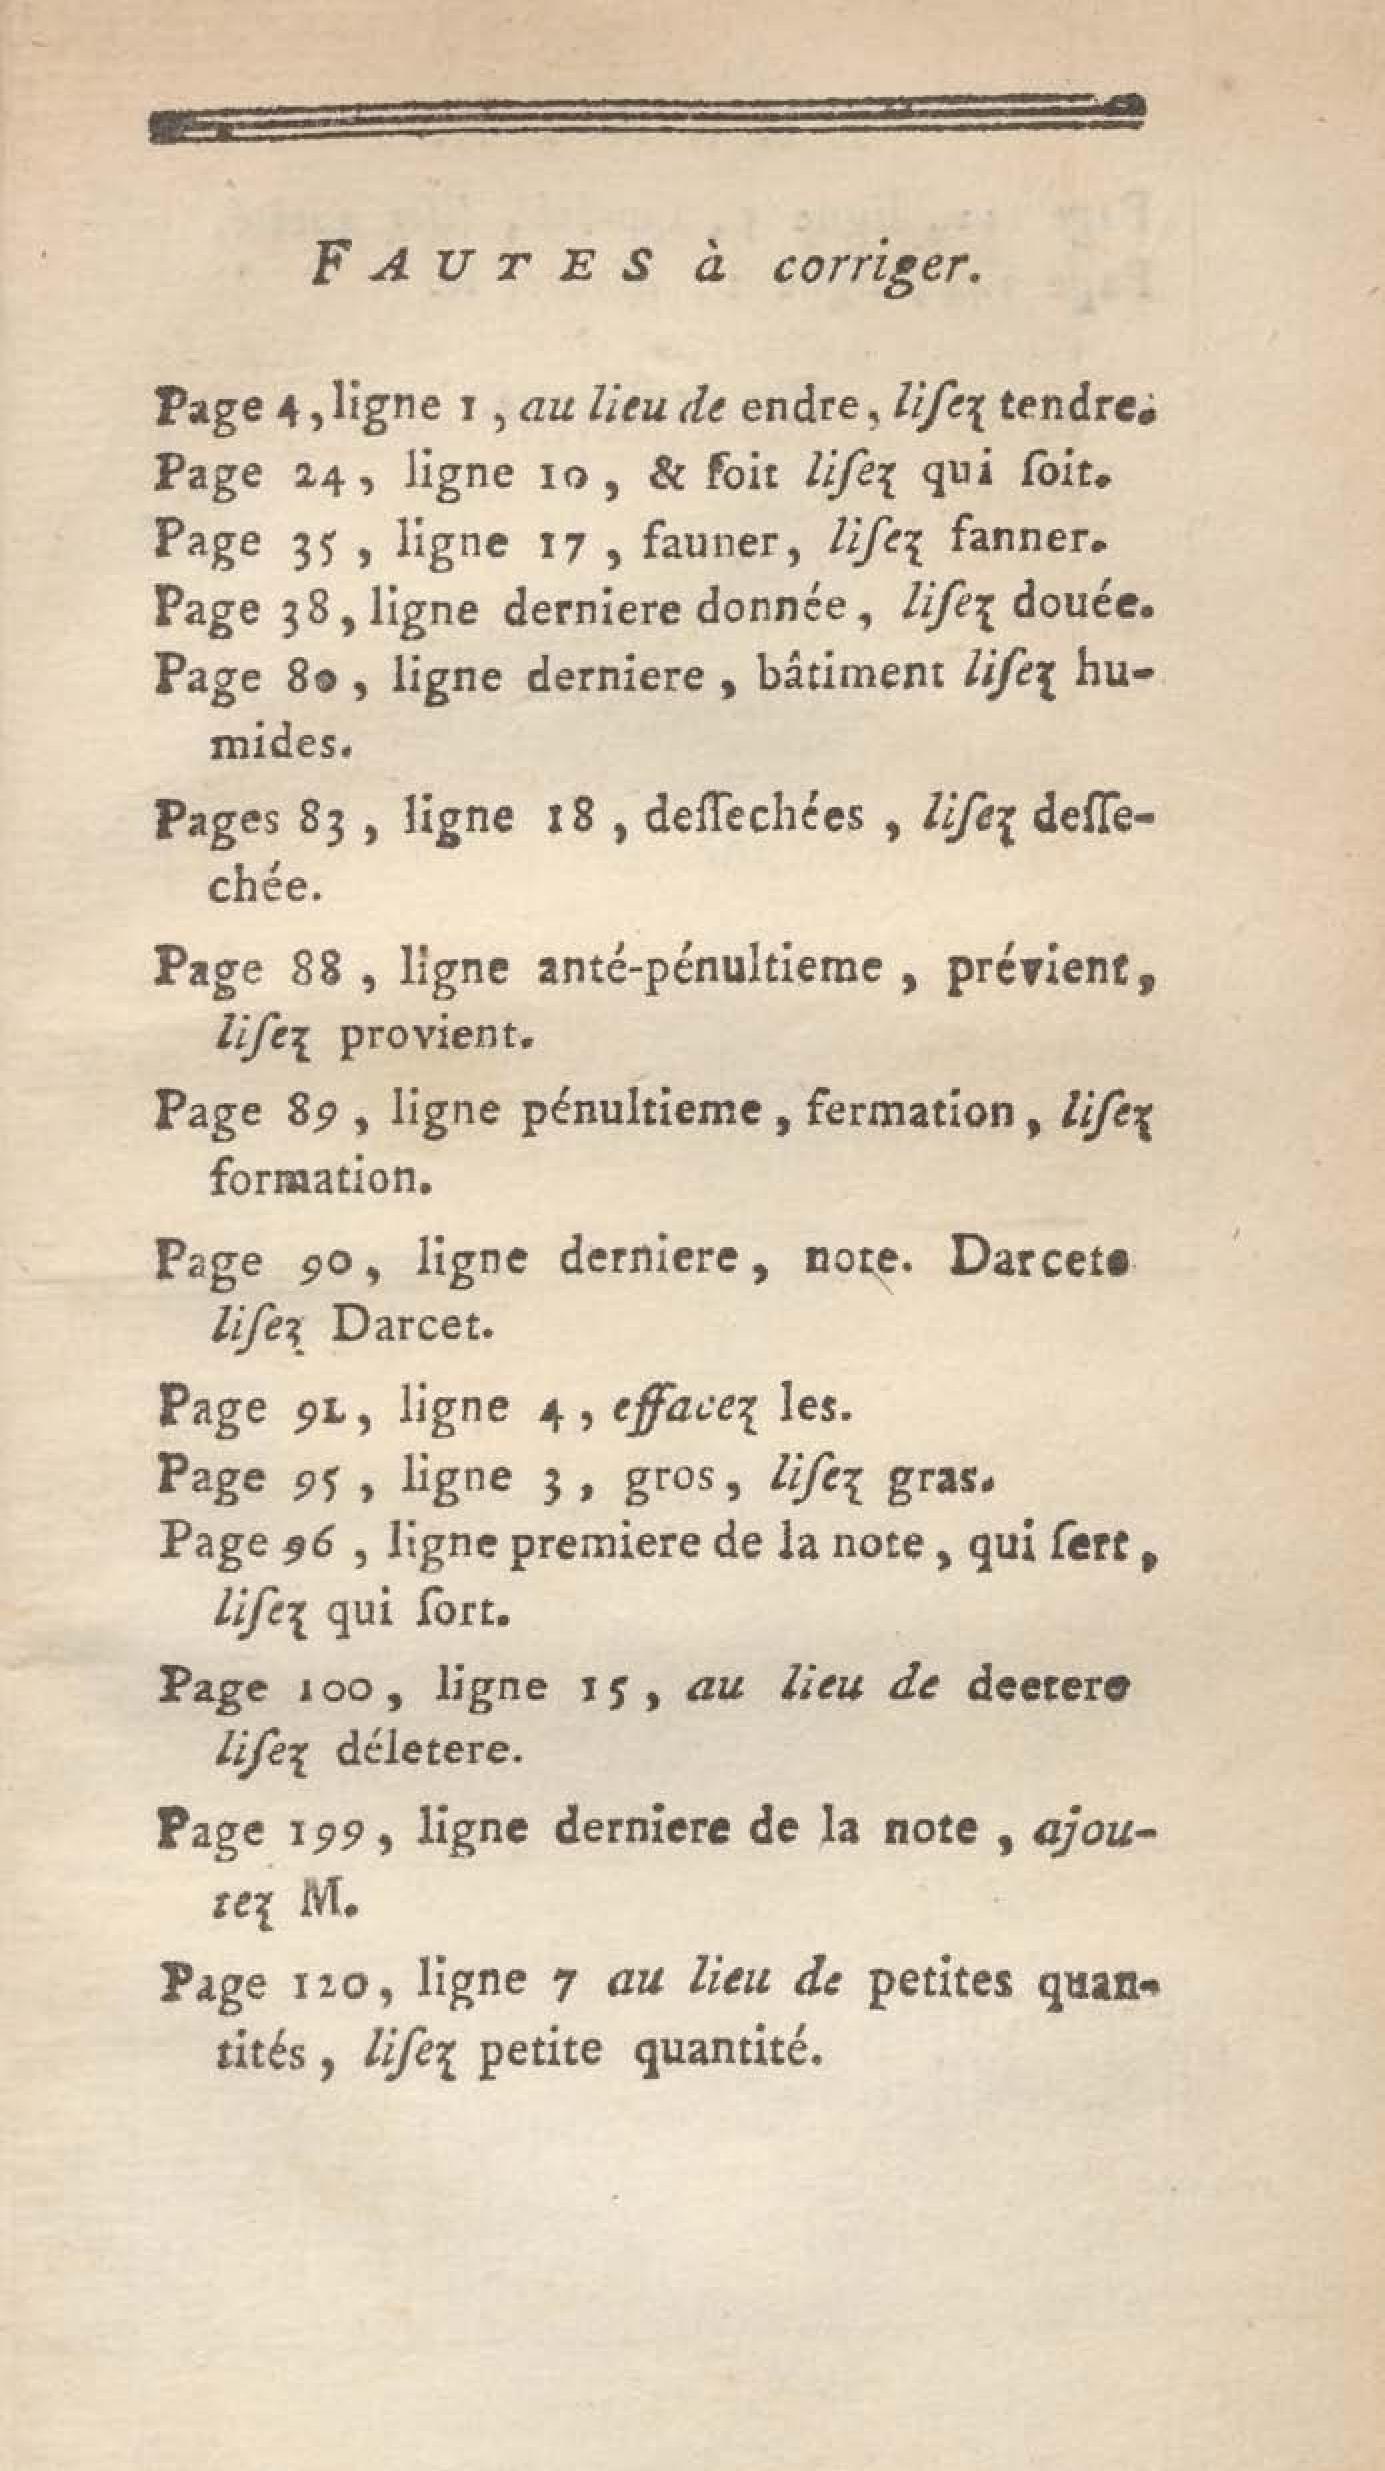 FAUTES à corriger.
Page 4, ligne 1, au lieu de endre, liſez tendre.
Page 24, ligne 10, & ſoit liſez qui ſoit.
Page 35, ligne 17, fauner, liſez fanner.
Page 38, ligne derniere donnée, liſez douée.
Page 80, ligne derniere, bâtiment liſez hu-
mides.
Pages 83, ligne 18, deſſechées, liſez deſſe-
chée.
Page 88, ligne anté-pénultieme, prévient,
liſez provient.
Page 89, ligne pénultieme, fermation, liſez
formation.
Page 90, ligne derniere, note. Darcete
liſez Darcet.
Page 91, ligne 4, effacez les.
Page 95, ligne 3, gros, liſez gras.
Page 96, ligne premiere de la note, qui ſert,
liſez qui ſort.
Page 100, ligne 15, au lieu de deetere
liſez déletere.
Page 199, ligne derniere de la note, ajou-
tez M.
Page 120, ligne 7 au lieu de petites quan-
tités, liſez petite quantité.